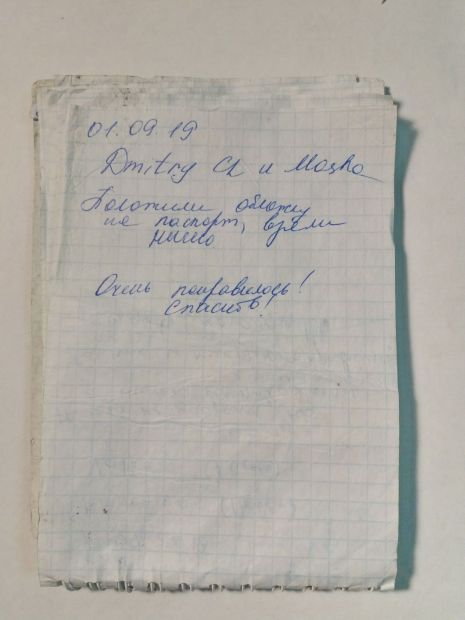 01.09.19
Dmitry Ch и Masha
Положили обложку
на паспорт, взяли
ничего
Очень понравилось!
Спасибо!